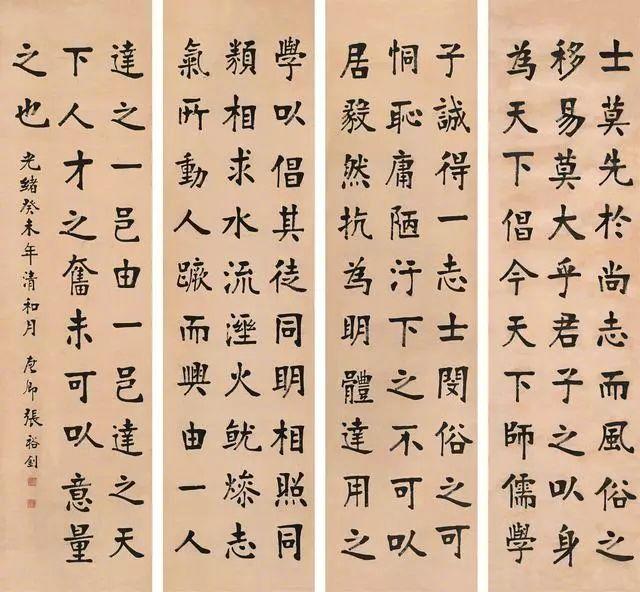 士莫先於尚志而風俗之
移易莫大乎君子之以身
為天下倡今天下師儒學
子誠得一志士閔俗之可
恫恥庸陋汙下之不可以
居毅然抗為明體達用之
學以倡其徒同明相照同
類相求水流溼火就燥志
氣所動人蹶而興由一人
達之一邑由一邑達之天
下人才之奮未可以意量
之也
光緒癸未年清和月 廉卿張裕釗